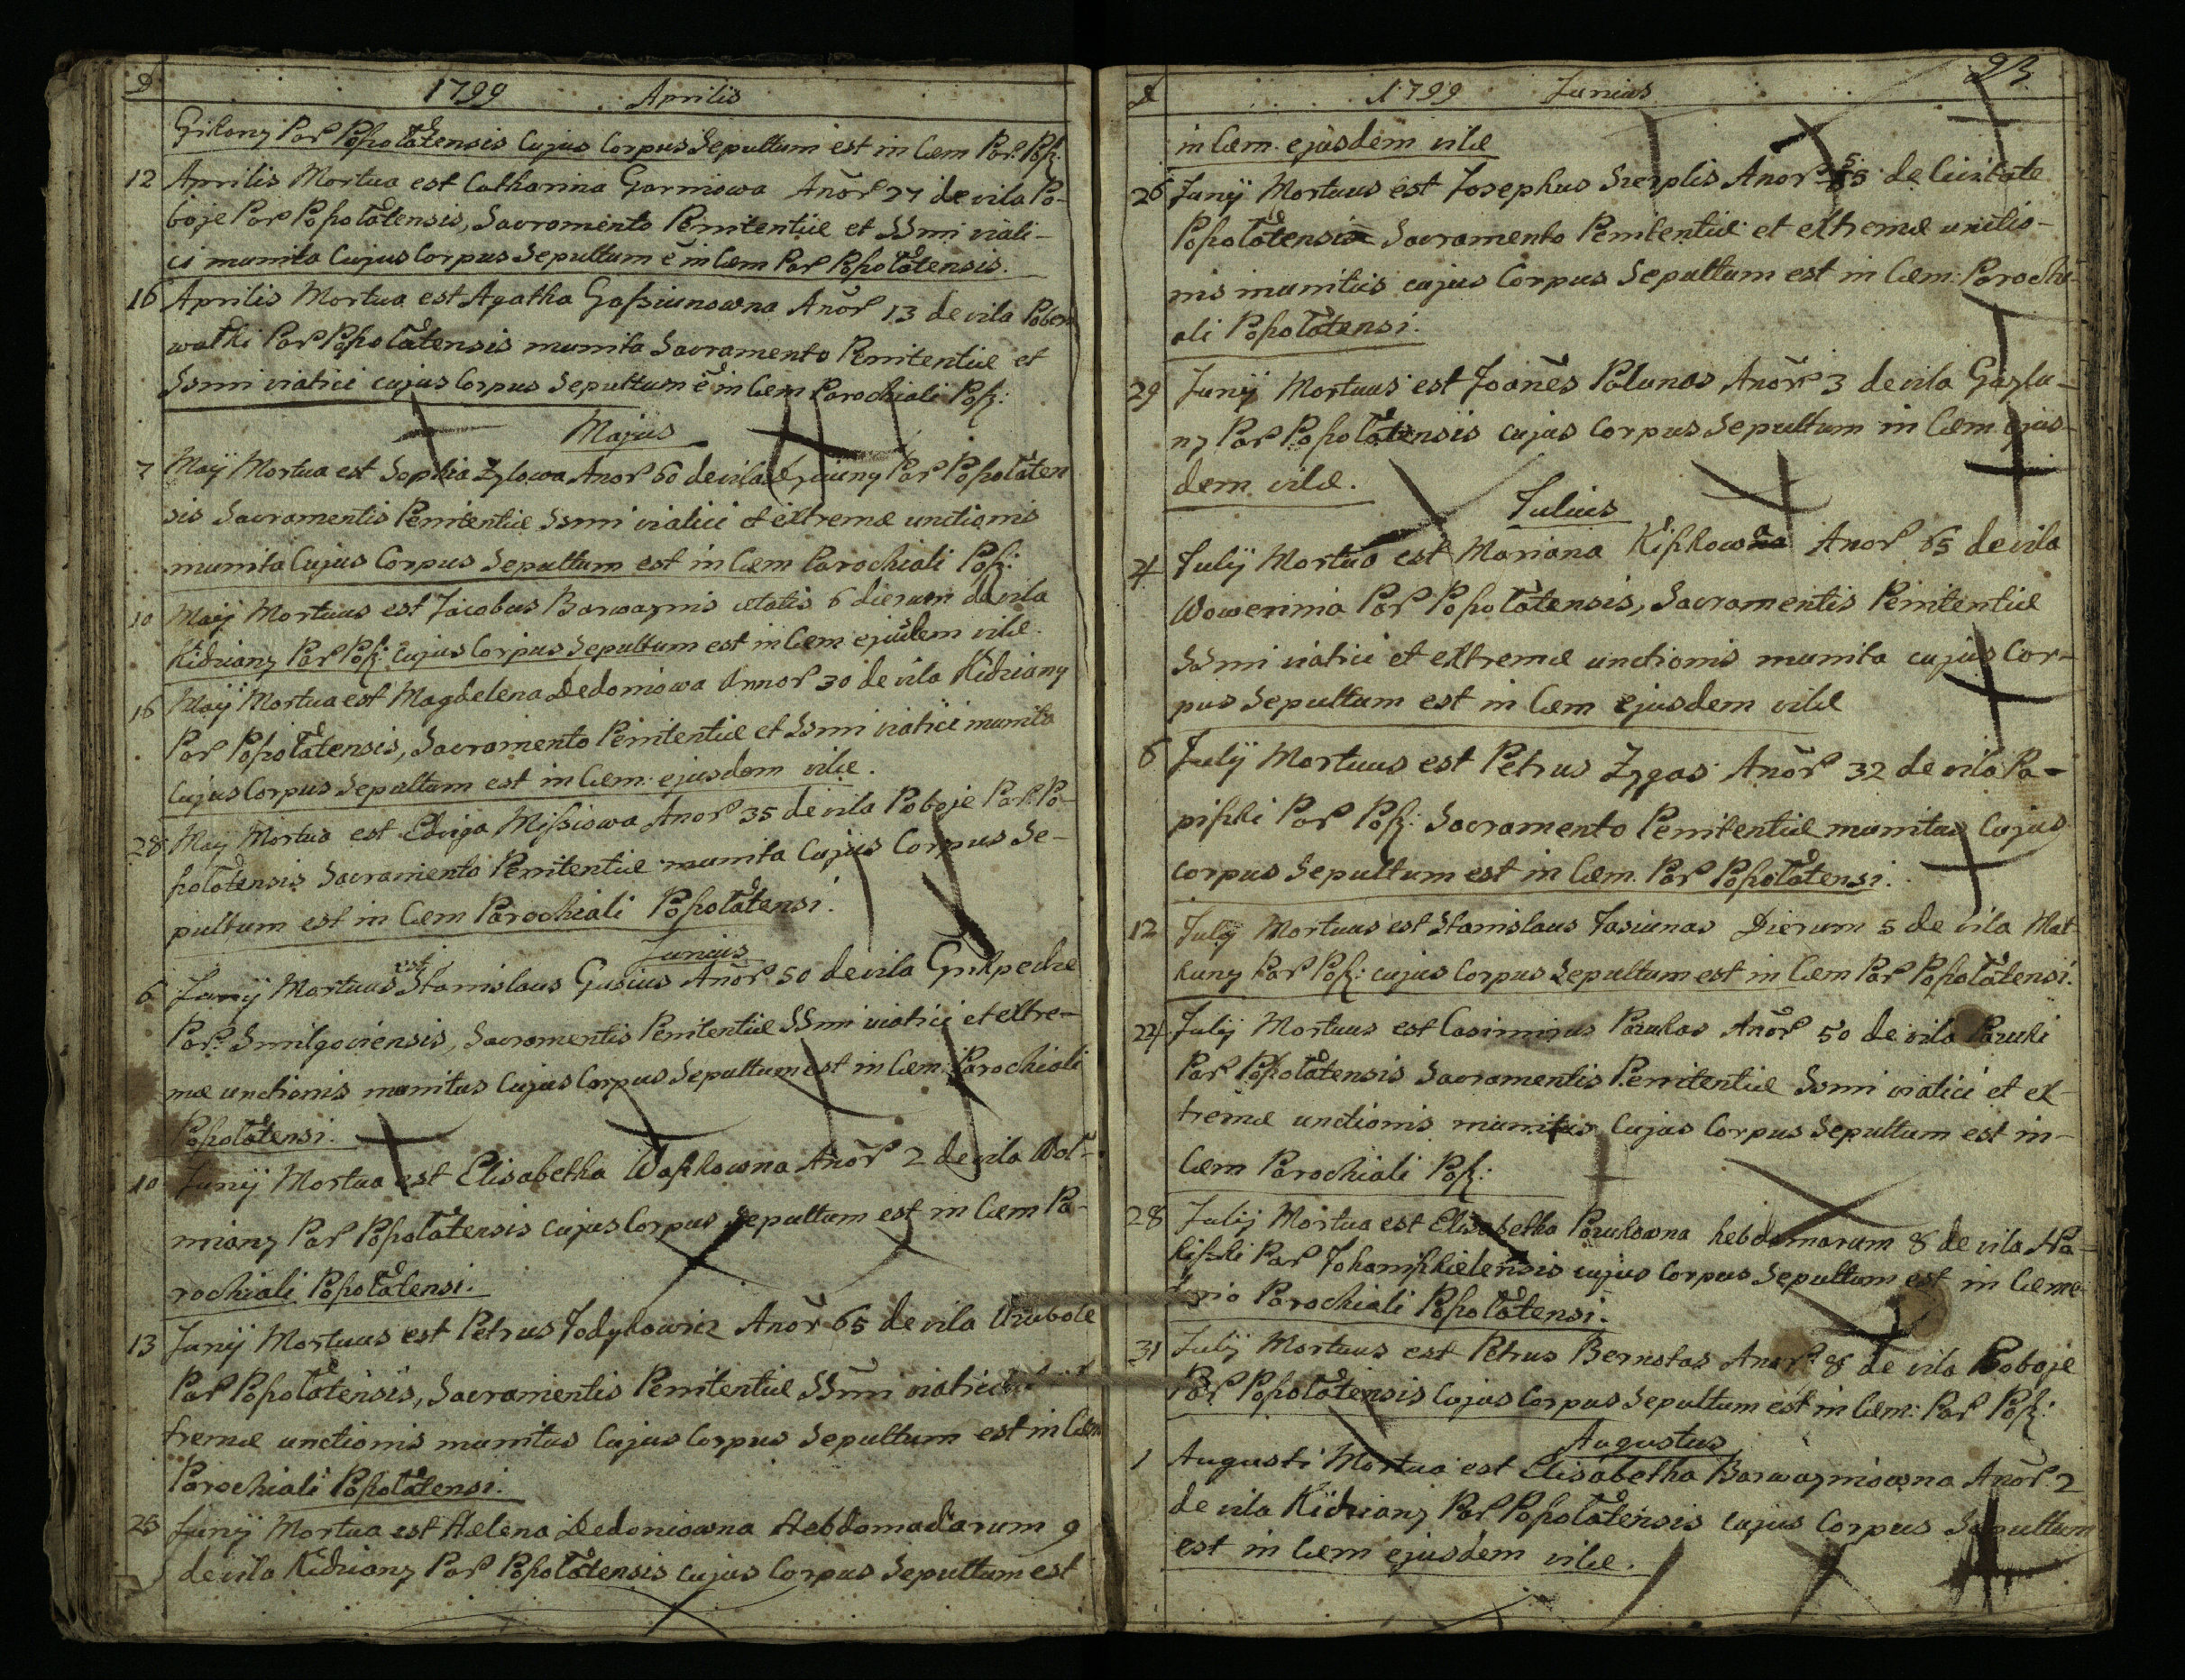 D 1799 Aprilis
Gikany Par Poszolatensis Cujus Corpus Sepultum est in Cæm Par: Posz:
12 Aprilis Mortua est Catharina Garniowa Anõr 27 de vila Po-
boje Par Poszolatensis, Sacramento Penitentiæ et SSmi viati-
ci munita Cujus Corpus Sepultum ẽ in Cæm Par Poszolatensis.
16 Aprilis Mortua est Agatha Gasziunowna Anõr 13 de vila Pober
watki Par Poszolatensis munita Sacramento Penitentiæ et
Ssmi viatici cujus Corpus Sepultum ẽ in Cæm Parochiali Posz:
Majus
7 Maÿ Mortua est Sophia Zylowa Anor 60 de vila Par Poszolaten
sis Sacramentis Penitentiæ Ssmi viatici et extremæ unctionis
munita Cujus Corpus Sepultum est in Cæm Parochiali Posz:
10 Maÿ Mortuus est Jacobus Barwaynis ætatis 6 dierum de vila
Kidziany Par Posz: Cujus Corpus Sepultum est in Cæm ejusdem vilæ.
16 Maÿ Mortua est Magdelena Dedoniowa Annor 30 de vila Kidziany
Par Poszolatensis, Sacramento Penitentiæ et Ssmi viatici munita
Cujus Corpus Sepultum est in Cæm: ejusdem vilæ.
28 Maÿ Mortua est Edviga Miszsiowa Anor 35 de vila Poboje Par Po-
szolatensis Sacramento Penitentiæ munita Cujus Corpus Se-
pultum est in Cæm Parochiali Poszolatensi.
Junius
6 Junÿ Mortuus est Stanislaus Gusius Anõr 50 de vila Grikpedze
Par: Smilgoviensis, Sacramentis Penitentiæ SSmi viatici et extre-
mæ unctionis munitus Cujus Corpus Sepultum est in Cæm: Parochiali
Poszolatensi.
10 Junÿ Mortua est Elisabetha Waszkowna Anõr 2 de vila Wol-
niany Par Poszolatensis cujus Corpus Sepultum est in Cæm Pa-
rochiali Poszolatensi.
13 Junÿ Mortuus est Petrus Jodykowicz Anõr 65 de vila
Par Poszolatensis, Sacramentis Penitentiæ SSmi viatici
tremæ unctionis munitus Cujus Corpus Sepultum est in Cæm
Parochiali Poszolatensi.
25 Junÿ Mortua est Hælena Dedoniowna Hebdomadarum 9
de vila Kidziany Par Poszolatensis cujus Corpus Sepultum est
D 1799 Junius 23
in Cæm. ejusdem vilæ
26 Junÿ Mortuus est Josephus Sierplis Anor 55 de Civitate
Poszolatensi Sacramento Penitentiæ et extremæ unctio-
nis munitus cujus Corpus Sepultum est in Cæm: Parochi-
ali Poszolatensi.
29 Junÿ Mortuus est Joañes Palunas Anõr 3 de vila Gaylu-
ny Par Poszolatensis cujus Corpus Sepultum in Cæm ejus-
dem vilæ.
Julius
4 Julÿ Mortua est Mariana Kiszkowna Anor 65 de vila
Wowerinia Par Poszolatensis, Sacramentis Penitentiæ
SSmi viatici et extremæ unctionis munita cujus Cor-
pus Sepultum est in Cæm ejusdem vilæ
6 Julÿ Mortuus est Petrus Zygas Anõr 32 de vila Pa-
piszki Par Posz: Sacramento Penitentiæ munitus Cujus
corpus Sepultum est in Cæm. Par Poszolatensi.
12 Julÿ Mortuus est Stanislaus Jasiunas Dierum 5 de vila Mat-
kuny Par Posz: cujus Corpus Sepultum est in Cæm Par Poszolatensi.
24 Julÿ Mortuus est Casimirus Paukas Anõr 50 de vila
Par Poszolatensis Sacramentis Penitentiæ Ssmi viatici et ex-
tremæ unctionis munitus Cujus Corpus Sepultum est in
Cæm Parochiali Posz:
28 Julÿ Mortua est Elisabetha hebdomarum 8 de vila
Par Johamszkielensis cujus Corpus Sepultum est in Cæme-
terio Parochiali Poszolatensi.
31 Julÿ Mortuus est Petrus Bernotas Anor: 8 de vila Poboje
Par Poszolatensis Cujus Corpus Sepultum est in Cæm: Par Posz:
Augustus
1 Augusti Mortua est Elisabetha Barwayniowna Anõr. 2
de vila Kidziany Par Poszolatensis cujus Corpus Sepultum
est in Cæm ejusdem vilæ.